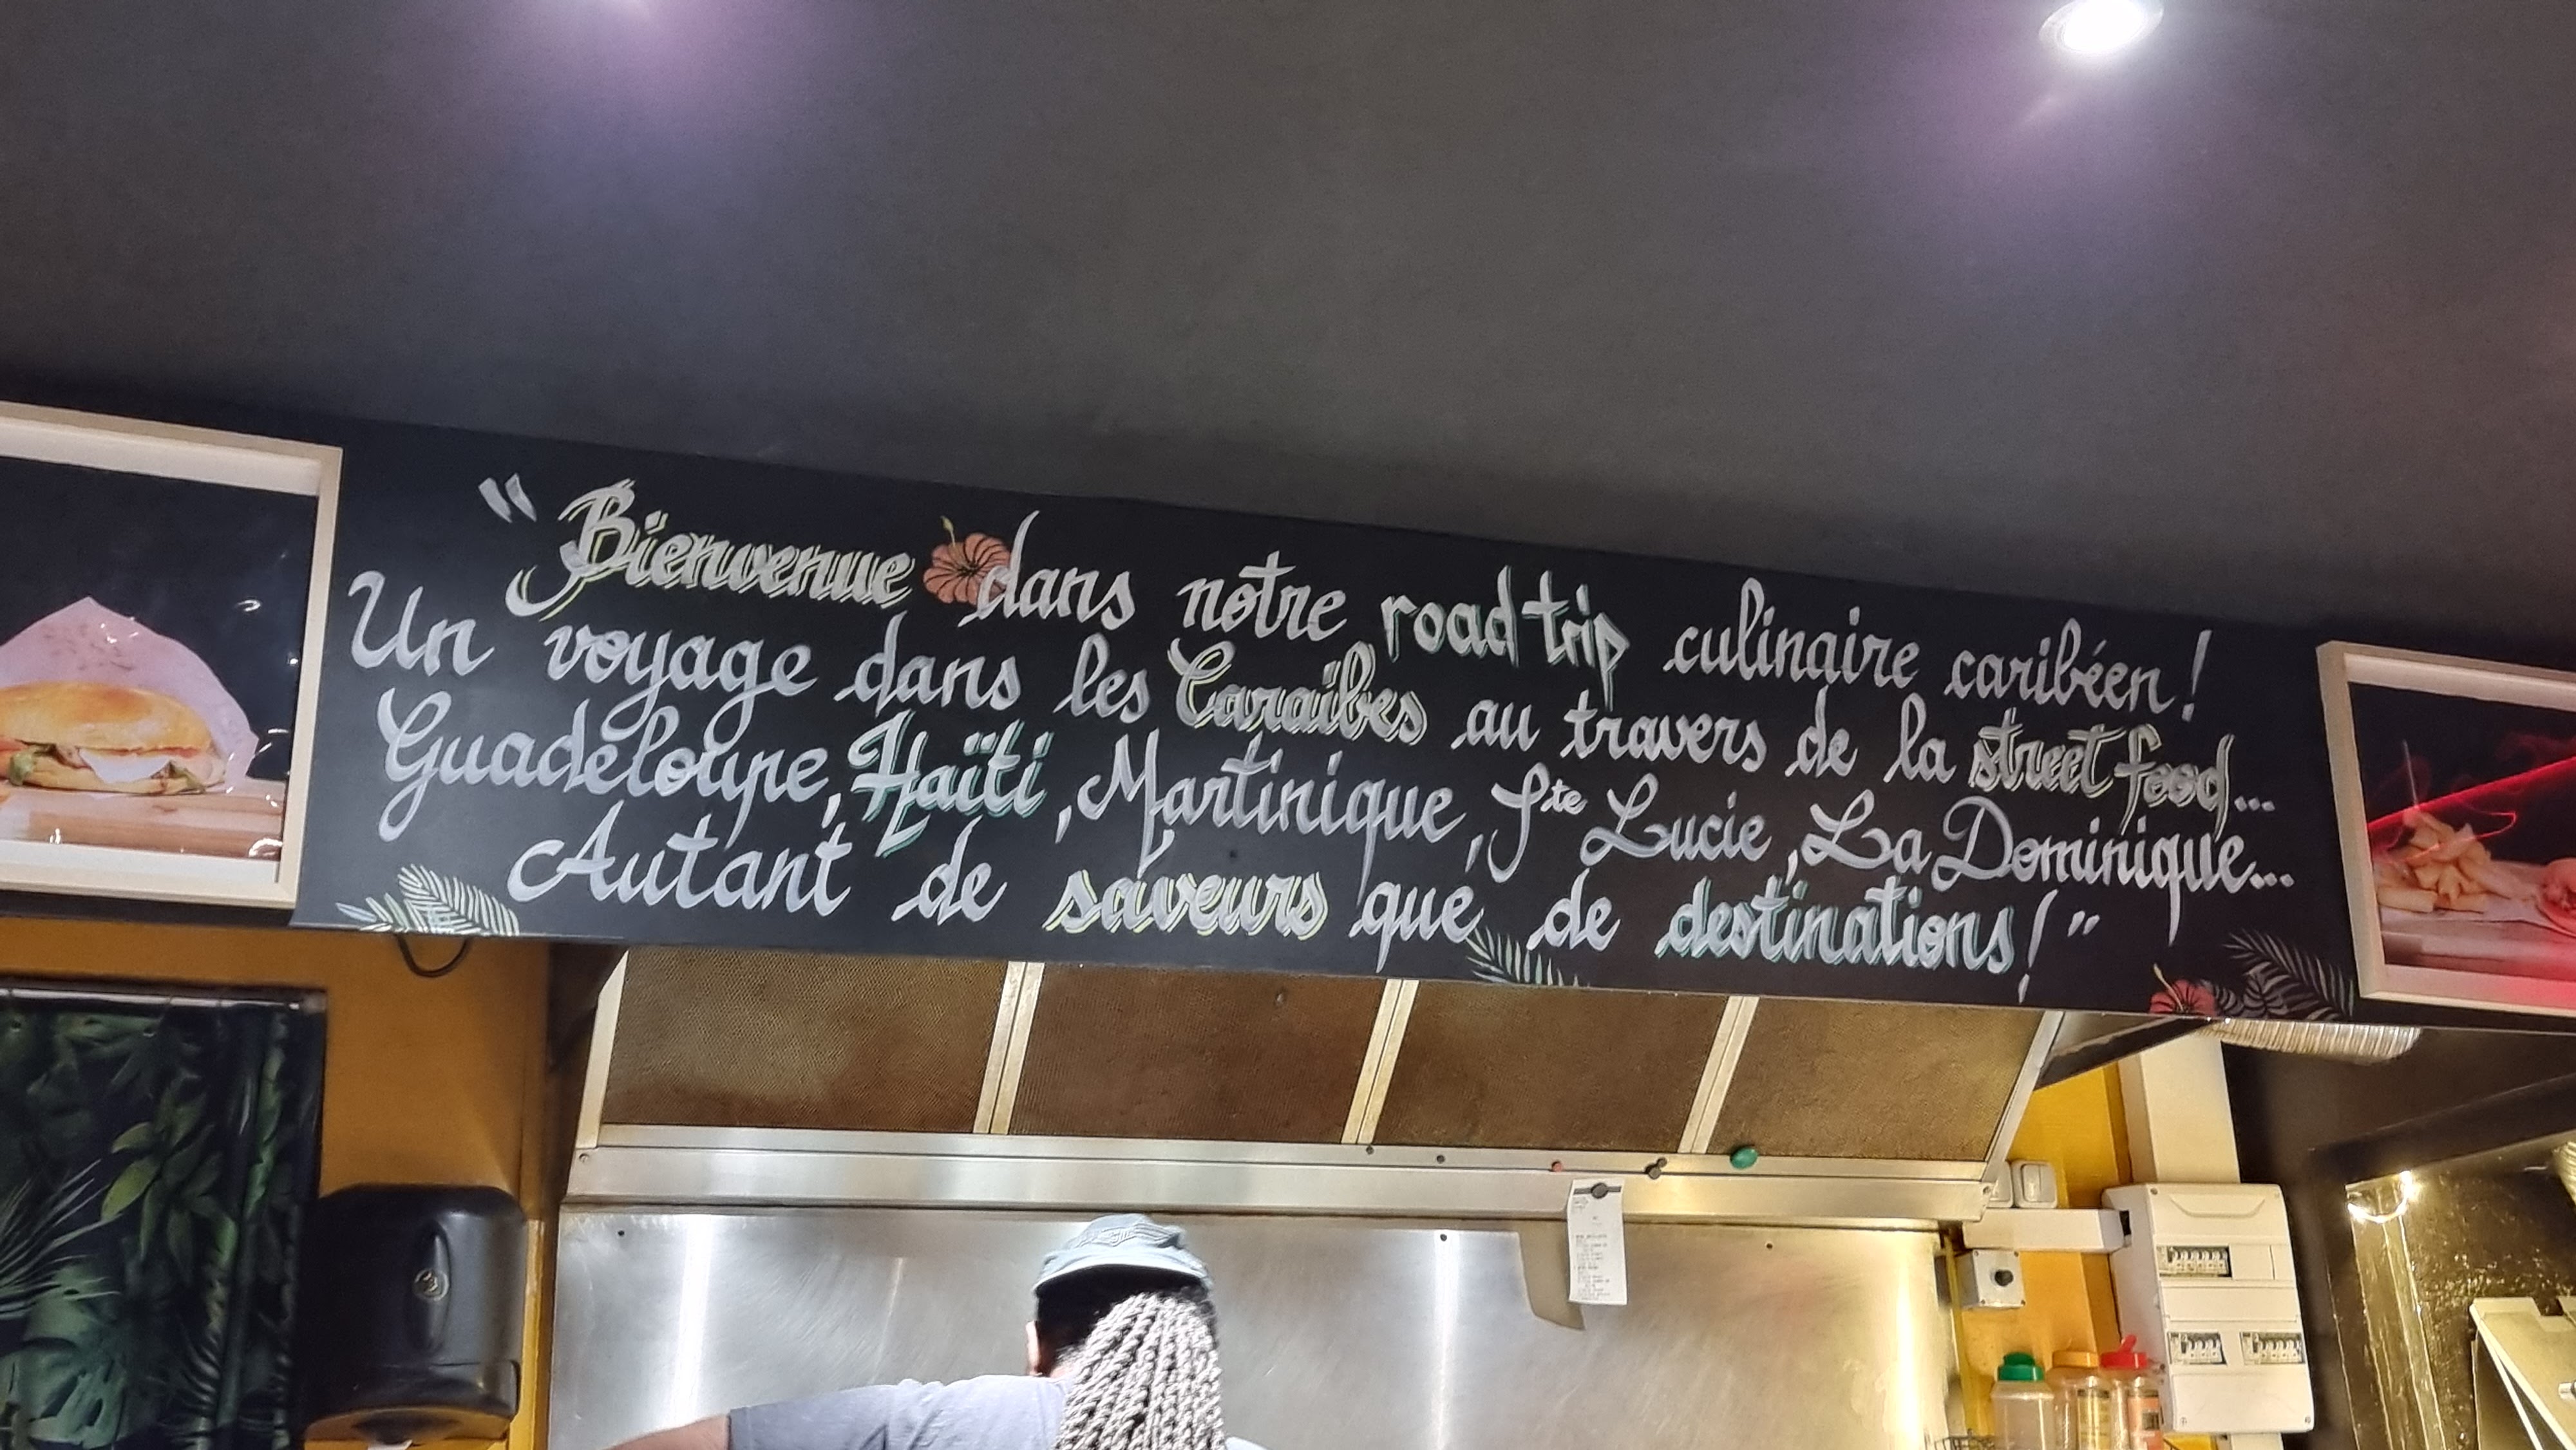 "Bienvenue dans notre road trip culinaire caribéen !
Un voyage dans les Caraïbes au travers de la street food...
Guadeloupe, Haïti, Martinique, Ste Lucie, La Dominique...
Autant de saveurs que de destinations ! "